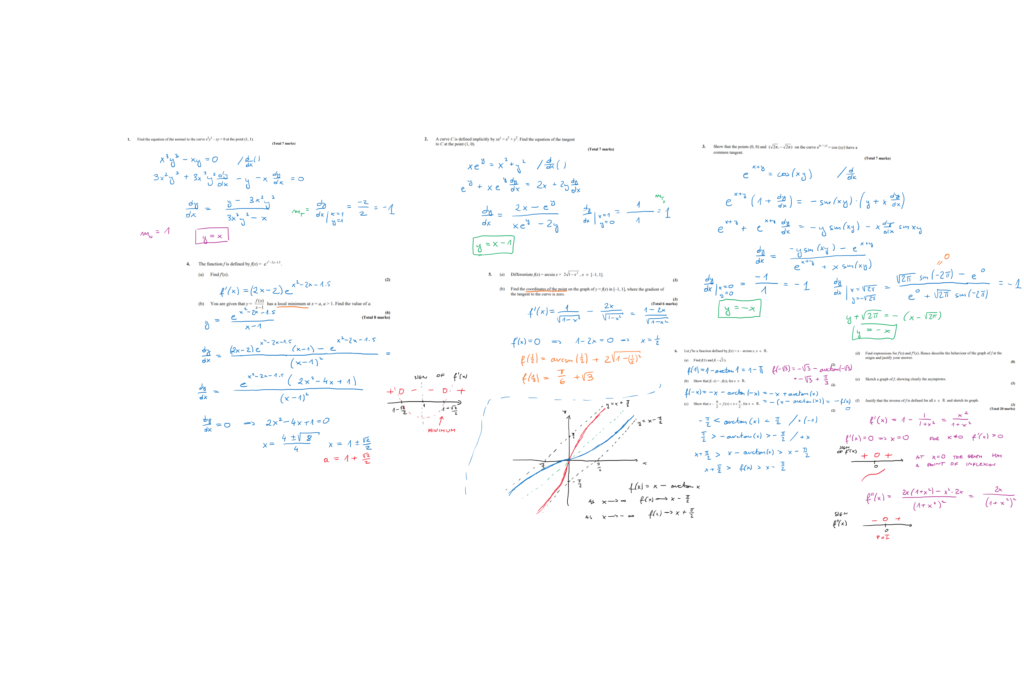 1. Find the equation of the normal to the curve x³y³ – xy = 0 at the point (1, 1).
(Total 7 marks)
x³y³ - xy = 0 / d/dx ( )
3x²y³ + 3x³y² dy/dx - y - x dy/dx = 0
dy/dx = (y - 3x²y³)/(3x³y² - x) m_T = dy/dx | x=1 y=1 = -2/2 = -1
m_N = 1 y = x
2. A curve C is defined implicitly by xeʸ = x² + y². Find the equation of the tangent
to C at the point (1, 0).
(Total 7 marks)
xeʸ = x² + y² / d/dx ( )
eʸ + xeʸ dy/dx = 2x + 2y dy/dx
dy/dx = (2x - eʸ)/(xeʸ - 2y) dy/dx | x=1 y=0 = 1/1 = 1
y = x - 1
3. Show that the points (0, 0) and (√2π, –√2π) on the curve e^(x+y) = cos (xy) have a
common tangent.
(Total 7 marks)
e^(x+y) = cos(xy) / d/dx
e^(x+y) (1 + dy/dx) = - sin(xy) · (y + x dy/dx)
e^(x+y) + e^(x+y) dy/dx = -y sin(xy) - x dy/dx sin xy
dy/dx = (-y sin(xy) - e^(x+y))/(e^(x+y) + x sin(xy))
dy/dx | x=0 y=0 = -1/1 = -1 dy/dx | x=√2π y=-√2π = (√2π sin(-2π) - e⁰)/(e⁰ + √2π sin(-2π)) = -1
y = -x
y + √2π = -(x - √2π)
y = -x
4. The function f is defined by f(x) = e^(x²–2x–1.5).
(a) Find f′(x).
(2)
f'(x) = (2x-2) e^(x²-2x-1.5)
(b) You are given that y = f(x)/(x–1) has a local minimum at x = a, a > 1. Find the value of a.
(6)
(Total 8 marks)
y = e^(x²-2x-1.5)/(x-1)
dy/dx = ((2x-2) e^(x²-2x-1.5) (x-1) - e^(x²-2x-1.5))/(x-1)² =
dy/dx = e^(x²-2x-1.5) (2x²-4x+1)/(x-1)²
dy/dx = 0 ⇒ 2x²-4x+1=0
x = (4±√8)/4 x = 1 ± √2/2
a = 1 + √2/2
SIGN OF f'(x)
+ 0 - - 0 +
1-√2/2 1 1+√2/2
MINIMUM
5. (a) Differentiate f(x) = arcsin x + 2√(1–x²), x ∈ [–1, 1].
(3)
(b) Find the coordinates of the point on the graph of y = f(x) in [–1, 1], where the gradient of
the tangent to the curve is zero.
(3)
(Total 6 marks)
f'(x) = 1/√(1-x²) - 2x/√(1-x²) = (1-2x)/√(1-x²)
f'(x)=0 ⇒ 1-2x=0 ⇒ x=½
f(½) = arcsin(½) + 2√(1-(½)²)
f(½) = π/6 + √3
y = x + π/2
y = x - π/2
f(x) = x - arctan x
as x → ∞ f(x) → x - π/2
as x → -∞ f(x) → x + π/2
6. Let f be a function defined by f(x) = x – arctan x, x ∈ ℝ.
(a) Find f(1) and f(–√3).
f(1) = 1 - arctan 1 = 1 - π/4 f(-√3) = -√3 - arctan(-√3)
= -√3 + π/3
(b) Show that f(–x) = –f(x), for x ∈ ℝ.
f(-x) = -x - arctan(-x) = -x + arctan(x)
= -(x - arctan(x)) = -f(x)
-π/2 < arctan(x) < π/2 / ·(-1)
π/2 > -arctan(x) > -π/2 / + x
x + π/2 > x - arctan(x) > x - π/2
x + π/2 > f(x) > x - π/2
(d) Find expressions for f′(x) and f″(x). Hence describe the behaviour of the graph of f at the
origin and justify your answer.
(8)
(e) Sketch a graph of f, showing clearly the asymptotes.
(3)
(f) Justify that the inverse of f is defined for all x ∈ ℝ and sketch its graph.
(3)
(Total 20 marks)
f'(x) = 1 - 1/(1+x²) = x²/(1+x²)
f'(x)=0 ⇒ x=0 FOR x≠0 f'(x)>0
SIGN OF f'(x) + 0 +
0
AT x=0 THE GRAPH HAS
A POINT OF INFLEXION
f''(x) = (2x(1+x²) - x²·2x)/(1+x²)² = 2x/(1+x²)²
SIGN
f''(x) - 0 +
0